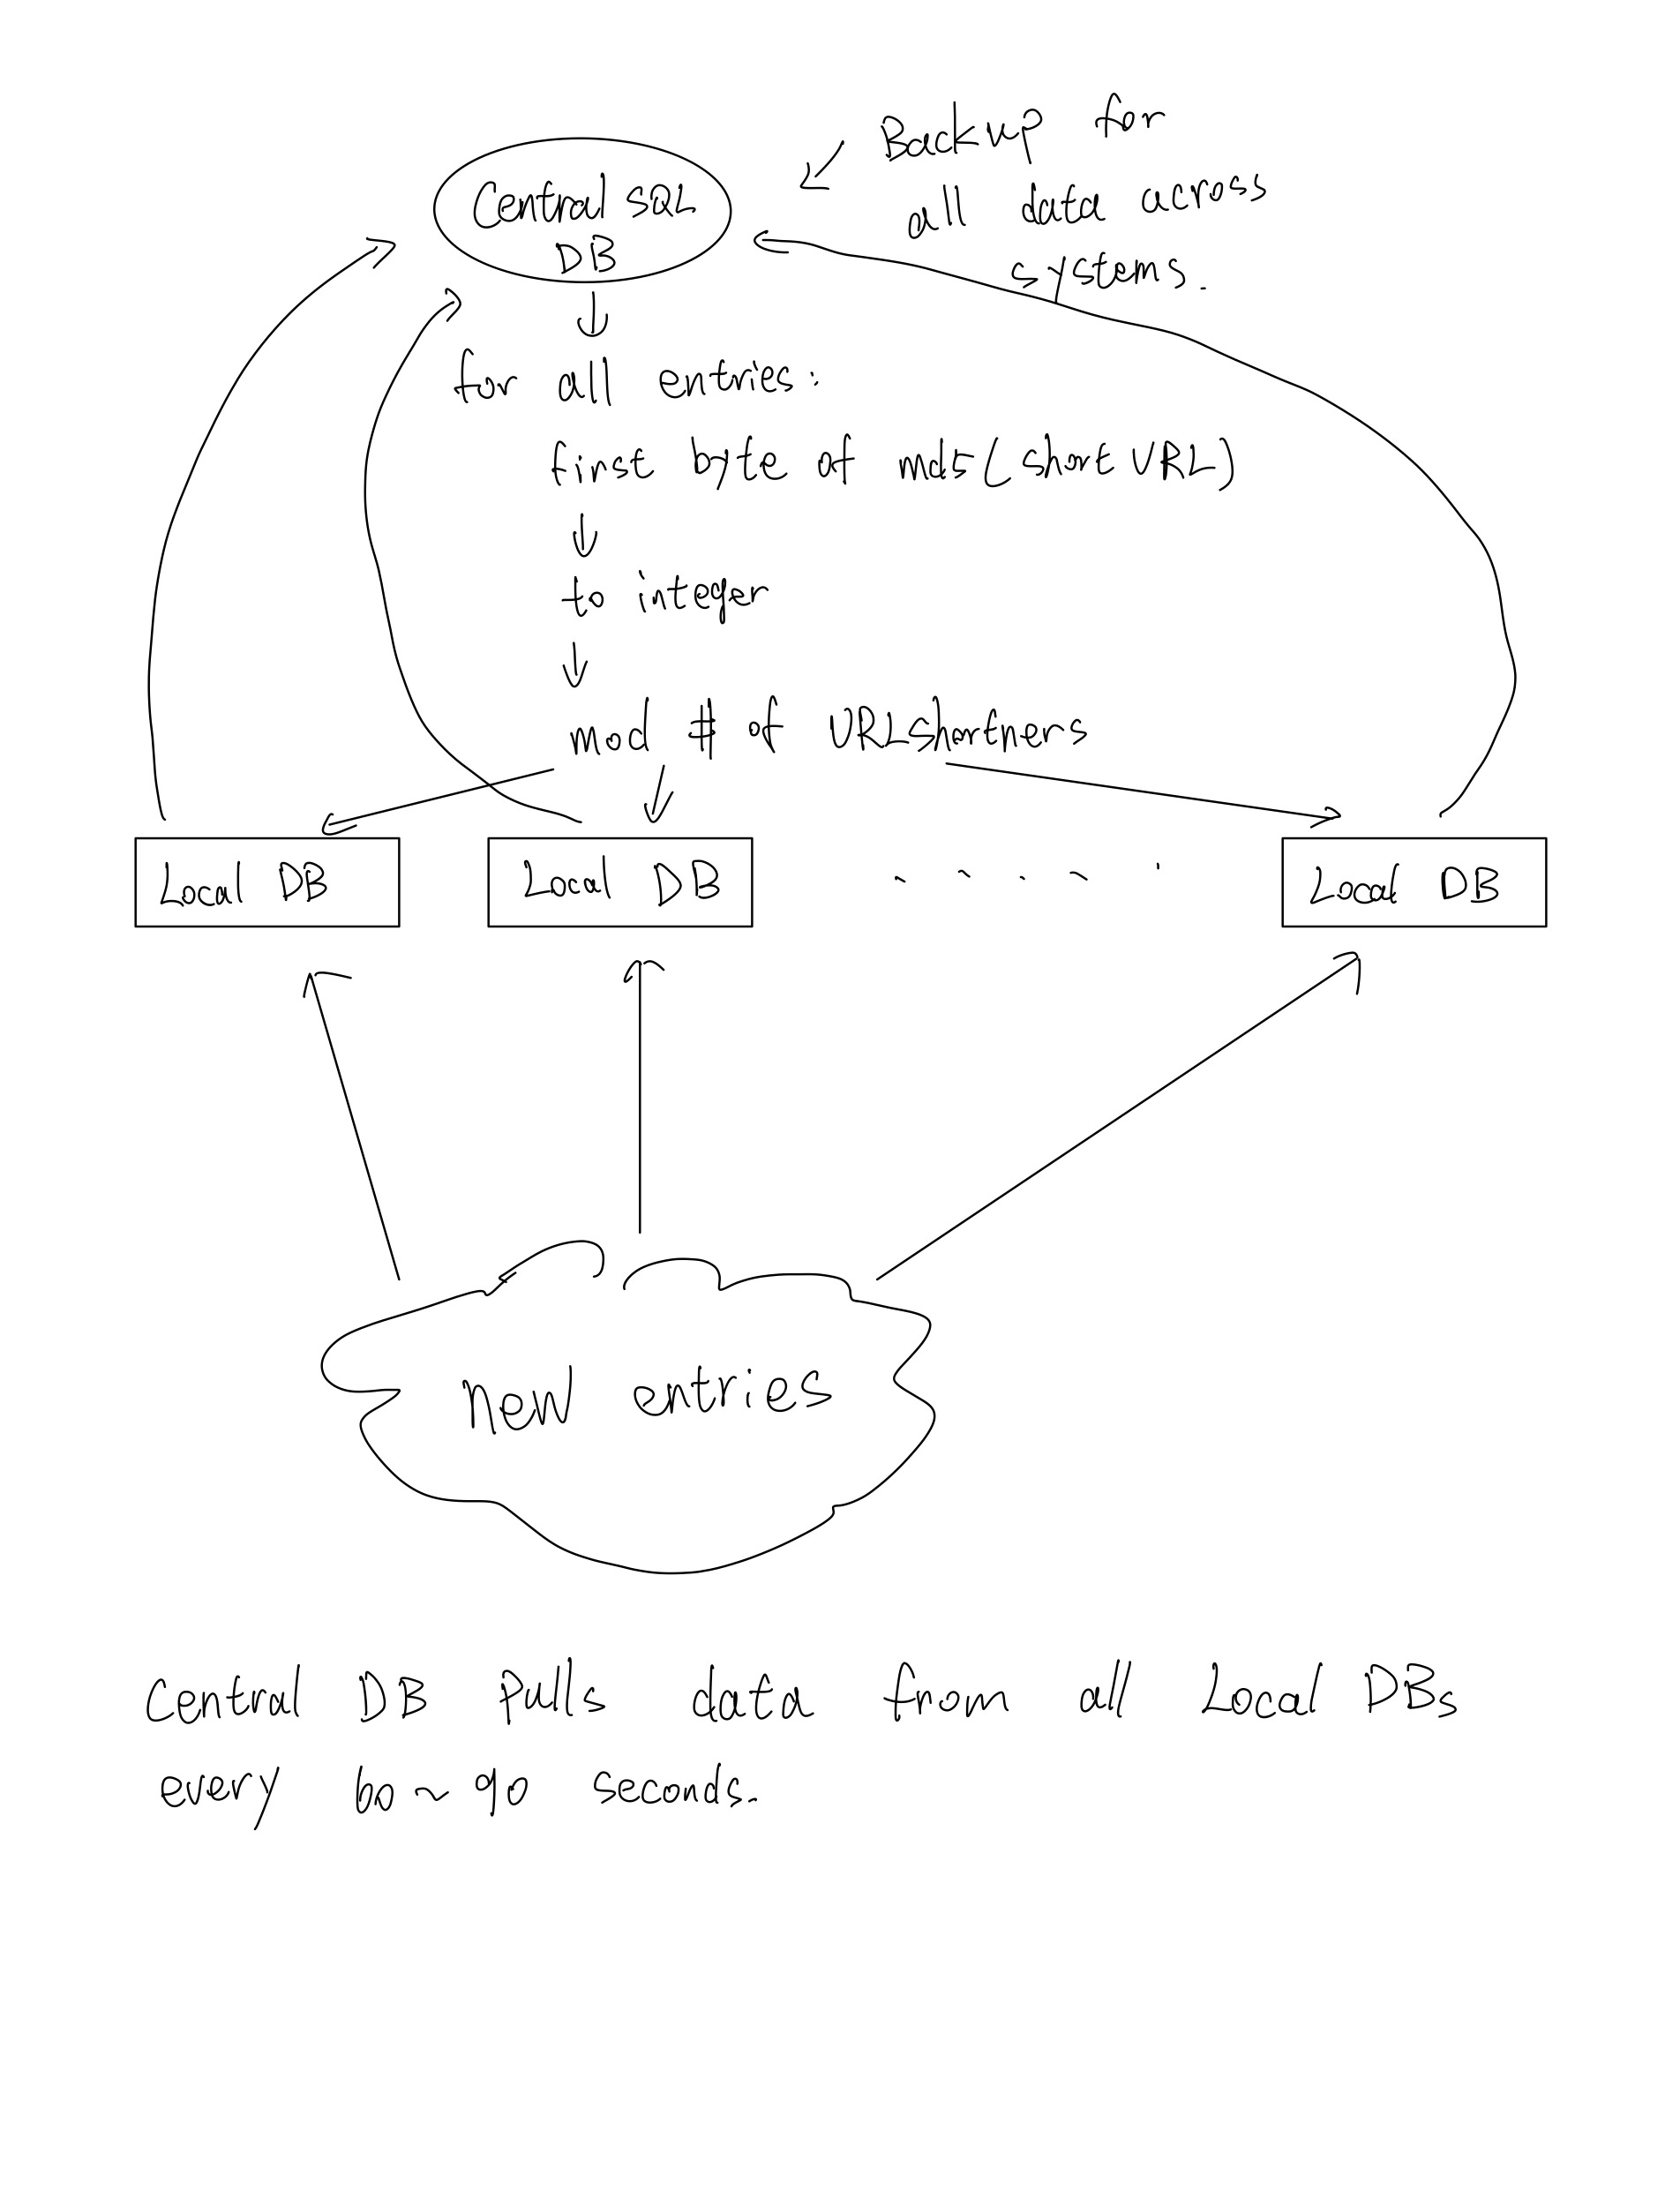 Backup for
all data across
systems.
Central SQL
DB
for all entries:
first byte of md5(short URL)
to integer
mod # of URLshortners
Local DB
Local DB
.....
Local DB
new entries
Central DB pulls data from all Local DBs
every 60~90 seconds.